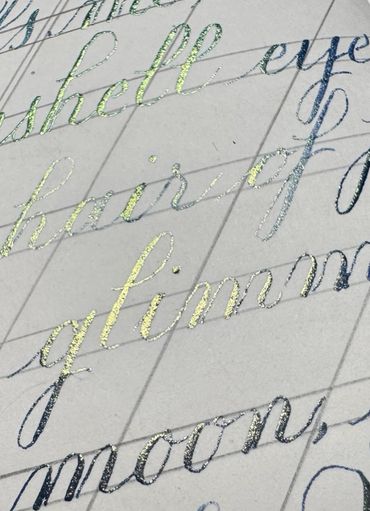 shell eye
hair of
glimm
moon,